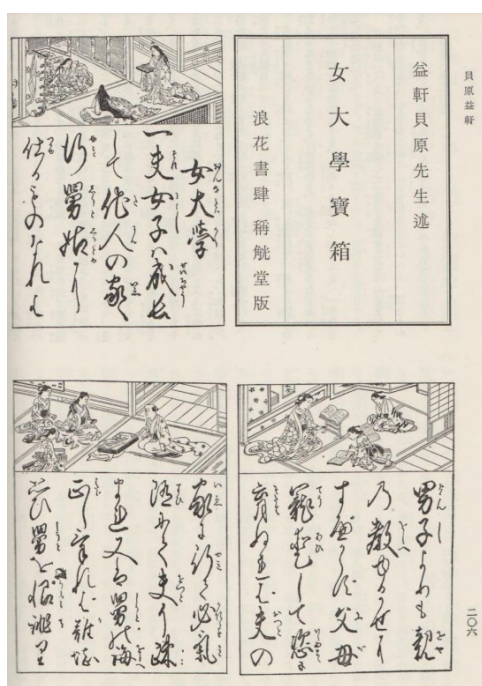 貝原益軒
益軒貝原先生述
女大學寶箱
浪花書肆 稱觥堂版
女大学
一夫女子ハ成長
して他人の家へ
行舅姑に
仕るものなれば
男子よりも親
乃教ゆるがせに
すべからず父母
寵愛して恣に
育ぬれば夫の
家に行て必氣
随にて夫に疎
まれ又は舅の誨
正しければ難堪
思ひ舅を恨誹り
二〇六